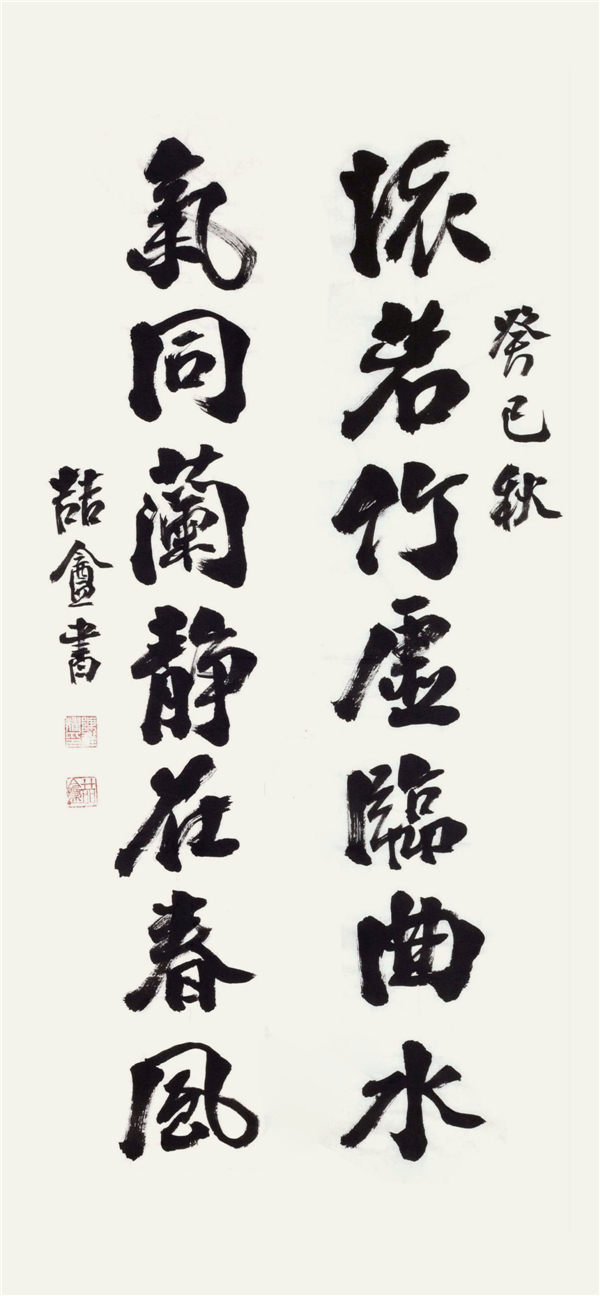 癸巳秋
懷若竹虛臨曲水
氣同蘭静在春風
喆盦書